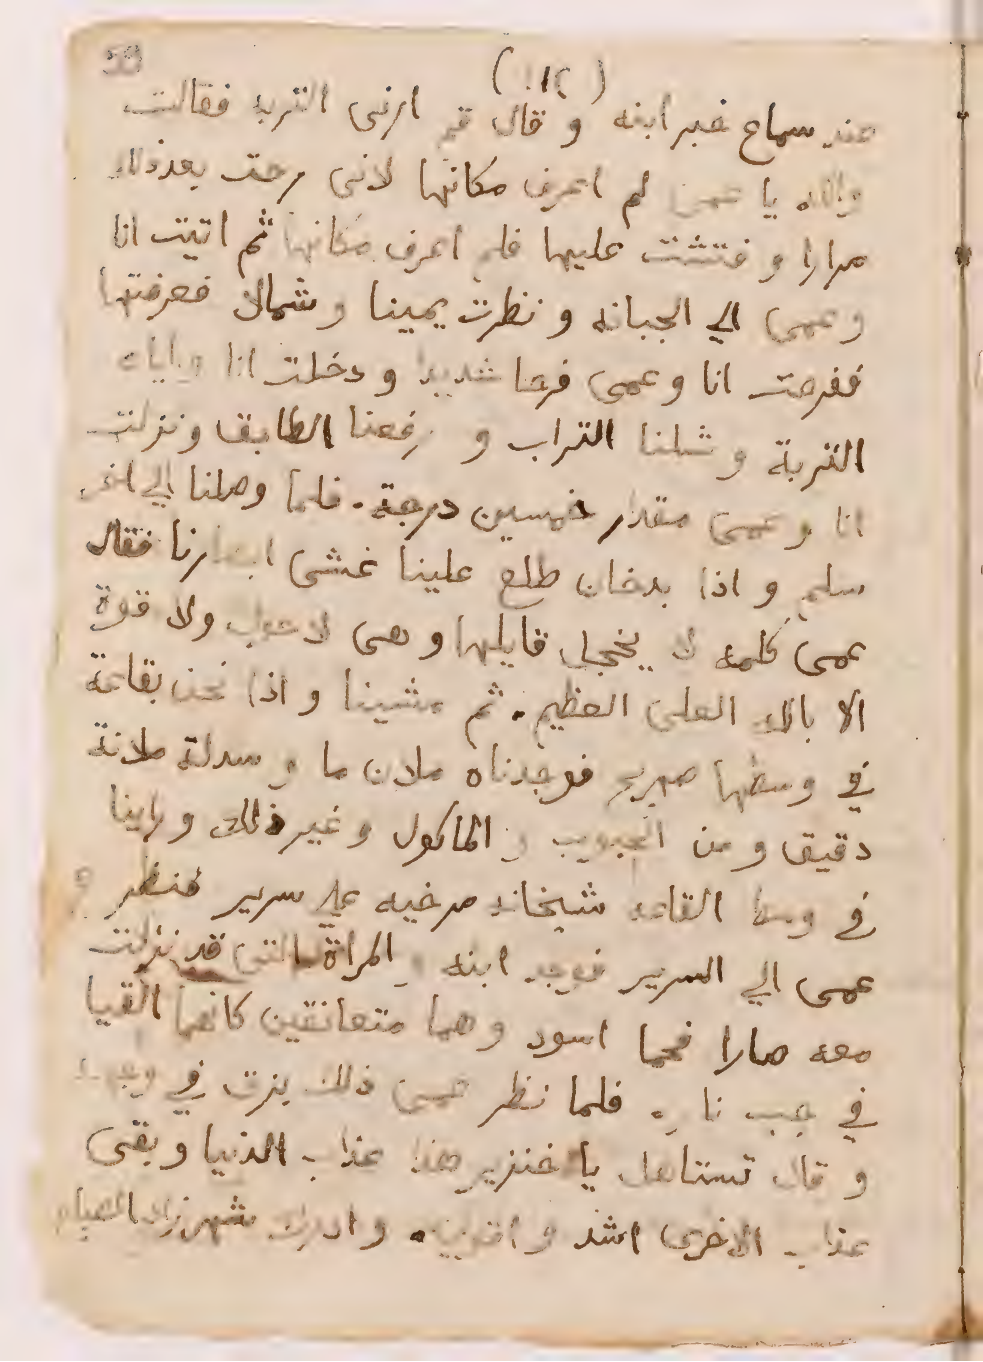 59
(١١٢)
عند سماع خبر ابنه و قال قم ارني التربه فقالت
والله يا عمى لم اعرف مكانها لانى رحت بعد ذلك
مرارا و فتشت عليها فلم اعرف مكانها ثم اتيت انا
و عمى الي الجبانه و نظرت يمينا و شمالا فعرفتها
ففرحت انا و عمى فرحا شديدا و دخلت انا واياه
التربة و شلنا التراب و رفعنا الطابق و نزلت
انا و عمى مقدار خمسين درجة. فلما وصلنا الي اخر
سلم و اذا بدخان طلع علينا غشى ابصارنا فقال
عمى كلمه لا يخجل قايلها و هى لا حول ولا قوة
الا بالله العلى العظيم. ثم مشينا و اذا نحن بقاعة
في وسطها صهريج فوجدناه ملان ما و سدلة ملانة
دقيق و من الحبوب و الماكول و غير ذلك و راينا
في وسط القاعه شيخانه مرخيه علي سرير فنظر
عمى الي السرير فوجد ابنه و المراة التى قد نزلت
معه صارا فحما اسود و هما متعانقين كانهما القيا
في جب نار. فلما نظر عمى ذلك بزق في وجهه
و قال تستاهل يا خنزير هذا عذاب الدنيا و بقى
عذاب الاخرى اشد و اقوى. و ادرك شهرزاد الصباح